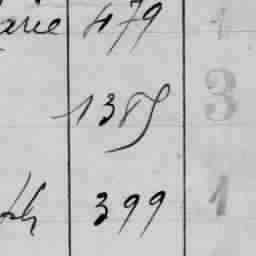 arie 479 1
1385 3
399 1